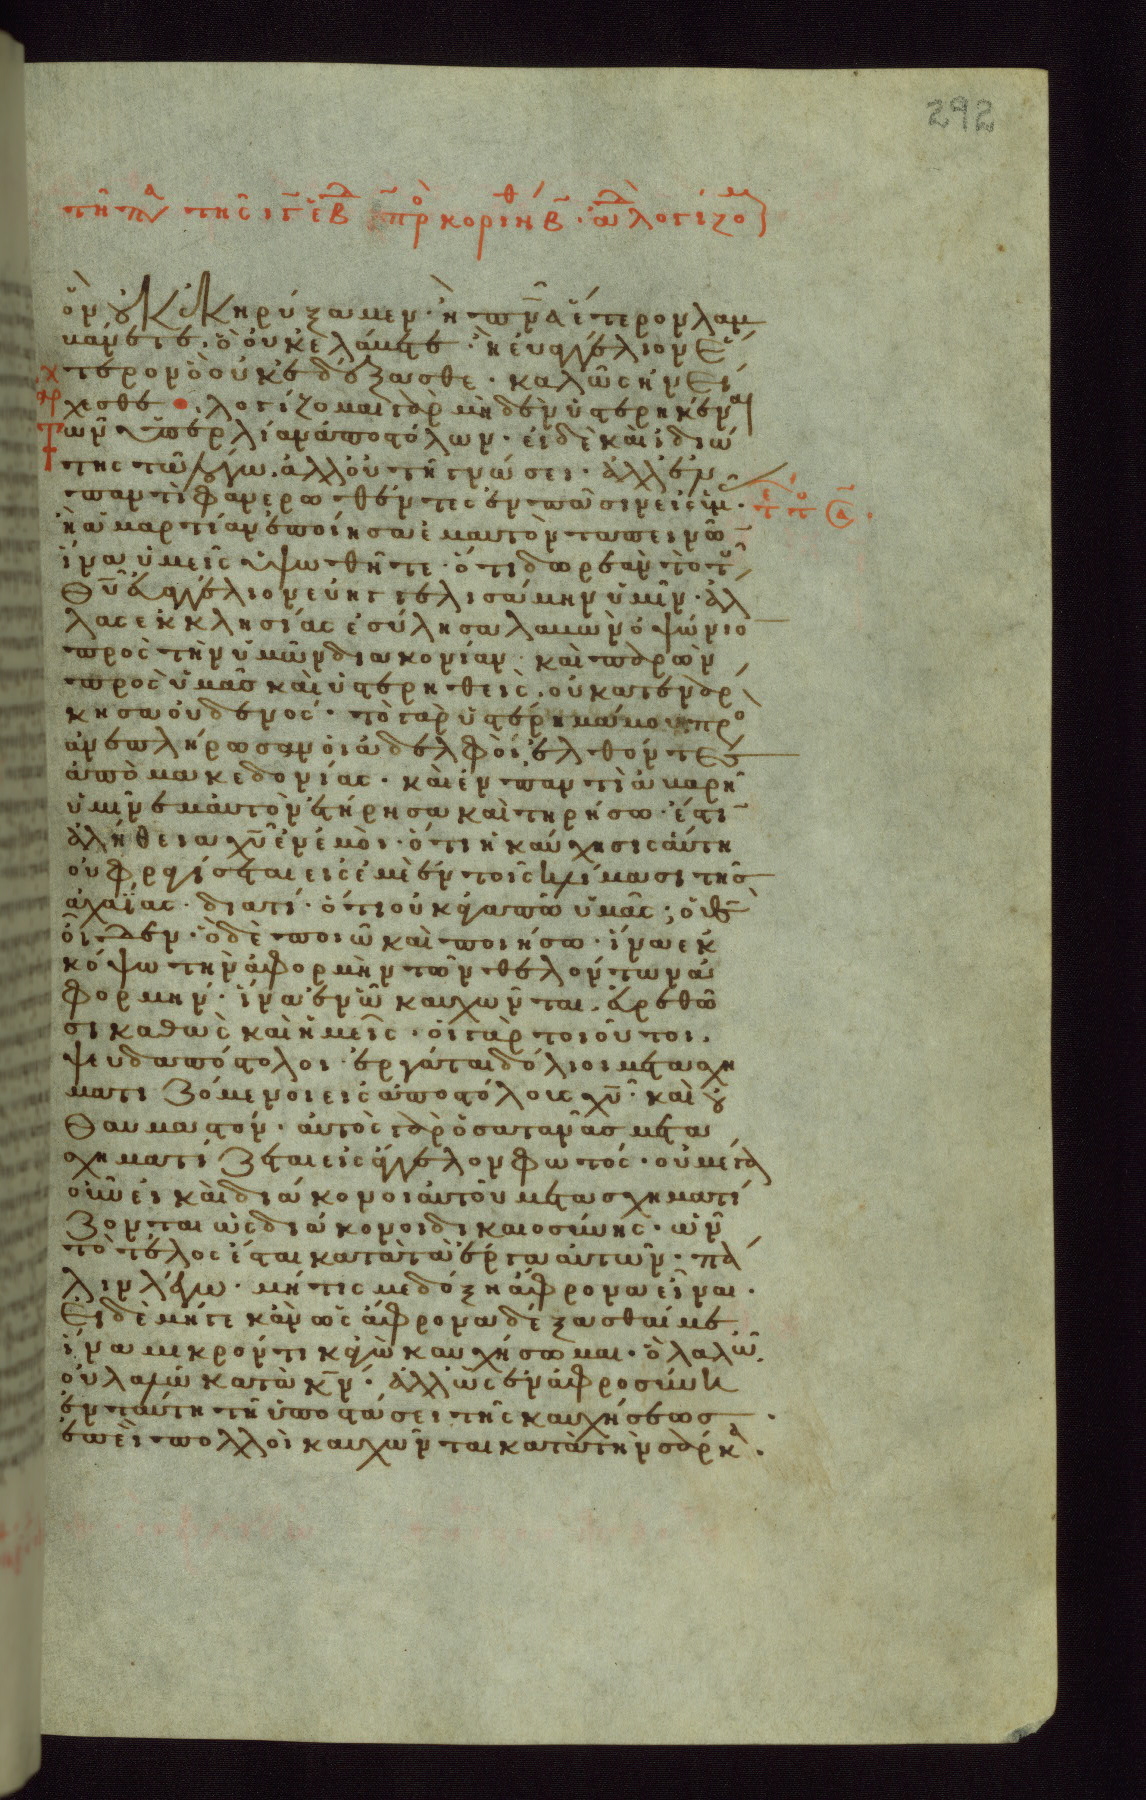 292
τῆ πα τῆς ιγ ἑβδ πρὸ κοριθ β ἀδελ λογίζομ
ὃν οὐκ ἐκηρύξαμεν· ἢ πνα ἕτερον λαμ
βάνετε. ὃ οὐκ ελάβετε. ἢ εὐαγγέλιον ἕ
τερον ὃ οὐκ ἐδέξασθε· καλῶς ἠνεί
χεσθε. λογίζομαι γὰρ μηδὲν ὑστερηκέναι
τῶν ὑπὲρ λίαν ἀποστόλων· εἰ δὲ καὶ ἰδιώ
της τῶ λόγω. ἀλλ' οὐ τῆ γνώσει· ἀλλ' ἐν
παντὶ φανερωθέντες ἐν πᾶσιν εἰς ὑμᾶς·
ἢ ἁμαρτίαν ἐποίησα ἐμαυτὸν ταπεινῶν
ἵνα ὑμεῖς ὑψωθῆτε· ὅτι δωρεὰν τὸ τοῦ
θυ εὐαγγέλιον εὐηγγελισάμην ὑμῖν· ἄλ
λας ἐκκλησίας ἐσύλησα λαβὼν ὀψώνιο
πρὸς τὴν ὑμῶν διακονίαν· καὶ παρὼν
πρὸς ὑμᾶς καὶ ὑστερηθεὶς. οὐ κατενάρ
κησα οὐδενός· τὸ γὰρ ὑστέρημά μου προ
ανεπλήρωσαν οἱ ἀδελφοὶ ἐλθόντες
ἀπὸ μακεδονίας· καὶ ἐν παντὶ ἀβαρῆ
ὑμῖν ἐμαυτὸν ἐτήρησα καὶ τηρήσω· ἔστιν
ἀλήθεια χυ ἐν ἐμοὶ· ὅτι ἡ καύχησις αὕτη
οὐ φραγήσεται εἰς ἐμὲ ἐν τοῖς κλίμασι τῆς
ἀχαΐας· διατί· ὅτι οὐκ ἀγαπῶ ὑμᾶς; ὁ θς
οἶδεν· ὃ δὲ ποιῶ καὶ ποιήσω· ἵνα ἐκ
κόψω τὴν ἀφορμὴν τῶν θελόντων ἀ
φορμήν· ἵνα ἐν ᾧ καυχῶνται. εὑρεθῶ
σι καθὼς καὶ ἡμεῖς· οἱ γὰρ τοιοῦτοι.
ψευδαπόστολοι· ἐργάται δόλιοι μετασχη
ματιζόμενοι εἰς ἀποστόλους χυ· καὶ οὐ
θαυμαστόν· αὐτὸς γὰρ ὁ σατανᾶς μετα
σχηματίζεται εἰς ἄγγελον φωτός· οὐ μέγα
οὖν εἰ καὶ διάκονοι αὐτοῦ μετασχηματί
ζονται ὡς διάκονοι δικαιοσύνης· ὧν
τὸ τέλος ἔσται κατὰ τὰ ἔργα αὐτῶν· πά
λιν λέγω· μή τις με δόξη ἄφρονα εἶναι·
εἰ δὲ μήγε κἂν ὡς ἄφρονα δέξασθαί με
ἵνα μικρόν τι κἀγὼ καυχήσωμαι· ὃ λαλῶ.
οὐ λαλῶ κατὰ κν· ἀλλ' ὡς ἐν ἀφροσύνη
ἐν ταύτη τῆ ὑποστάσει τῆς καυχήσεως
ἐπεὶ πολλοὶ καυχῶνται κατὰ τὴν σάρκα.